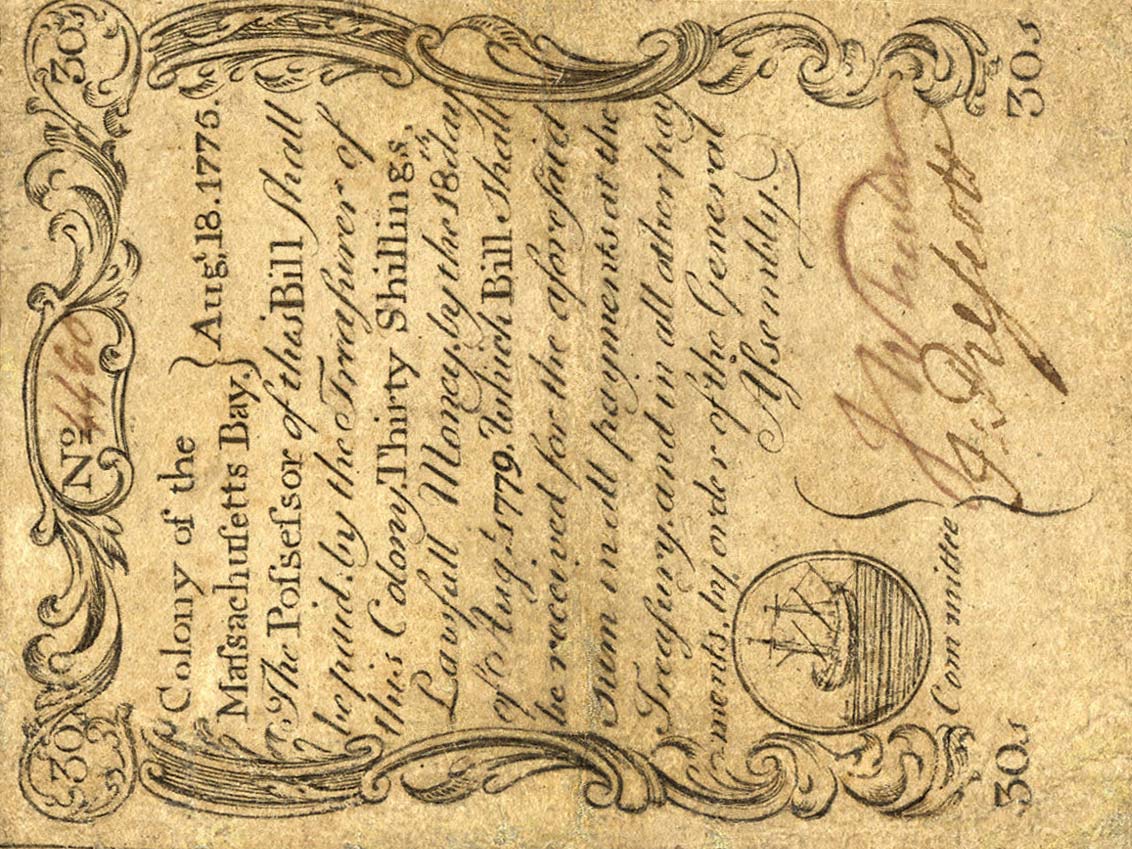 30s Nº 4460 30s
Colony of the } Aug,18.1775.
Maſsachuſetts Bay, }
The Poſseſsor of this Bill ſhall
be paid, by the Treaſurer of
this Colony, Thirty Shillings,
Lawfull Money, by the 18.th day
of Aug.t 1779. Which Bill ſhall
be received for the aforeſaid
Sum in all payments at the
Treaſury, and in all other pay
ments, by order of the General
Aſsembly.
Committe
J: Preſcott
30s 30s